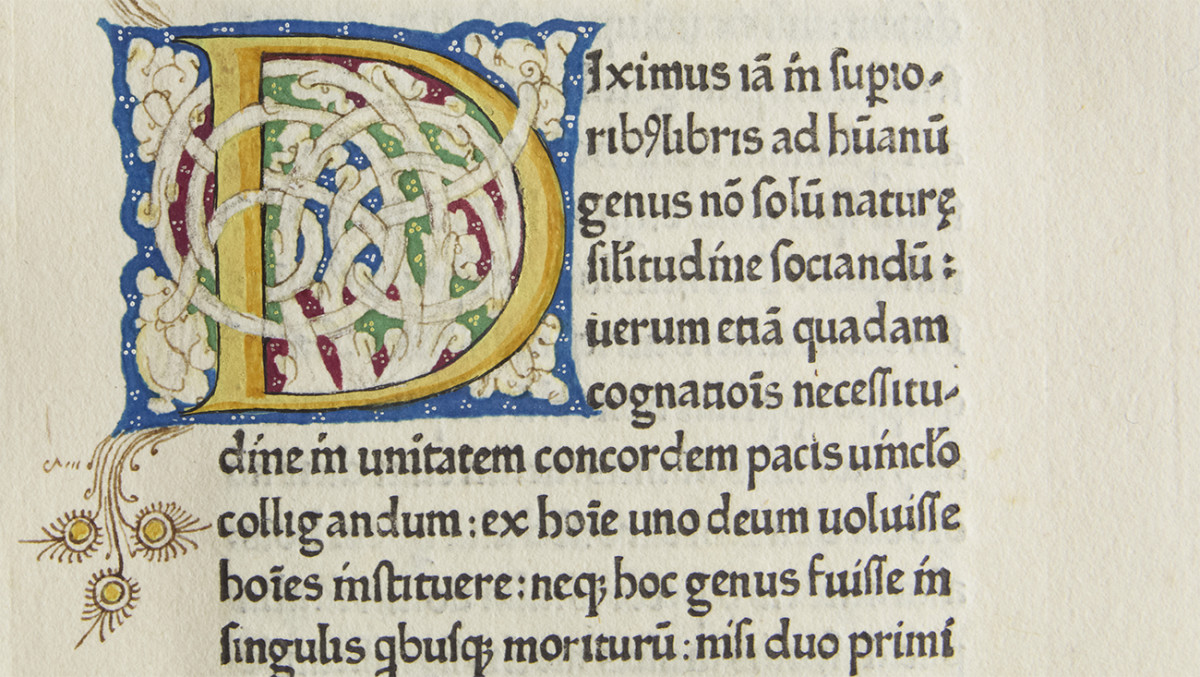 DIximus iā in suꝑio-
ribꝰ libris ad hūanū
genus nō solū naturę
silitudine sociandū :
uerum etiā quadam
cognatiōis necessitu-
dine in unitatem concordem pacis uinclo
colligandum : ex hoīe uno deum uoluisse
hoīes instituere : neq; hoc genus fuisse in
singulis qbusq; moriturū : nisi duo primi